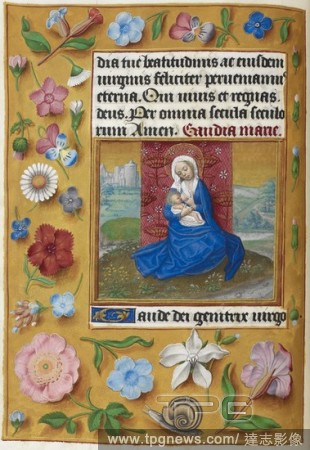 dia tue beatitudinis ac eiusdem
virginis feliciter perueniamus
eterna. Qui viuis et regnas
deus. Per omnia secula seculo
rum Amen. Gaudia marie.
Gaude dei genitrix virgo
TPG
www.tpgnews.com/ 達志影像